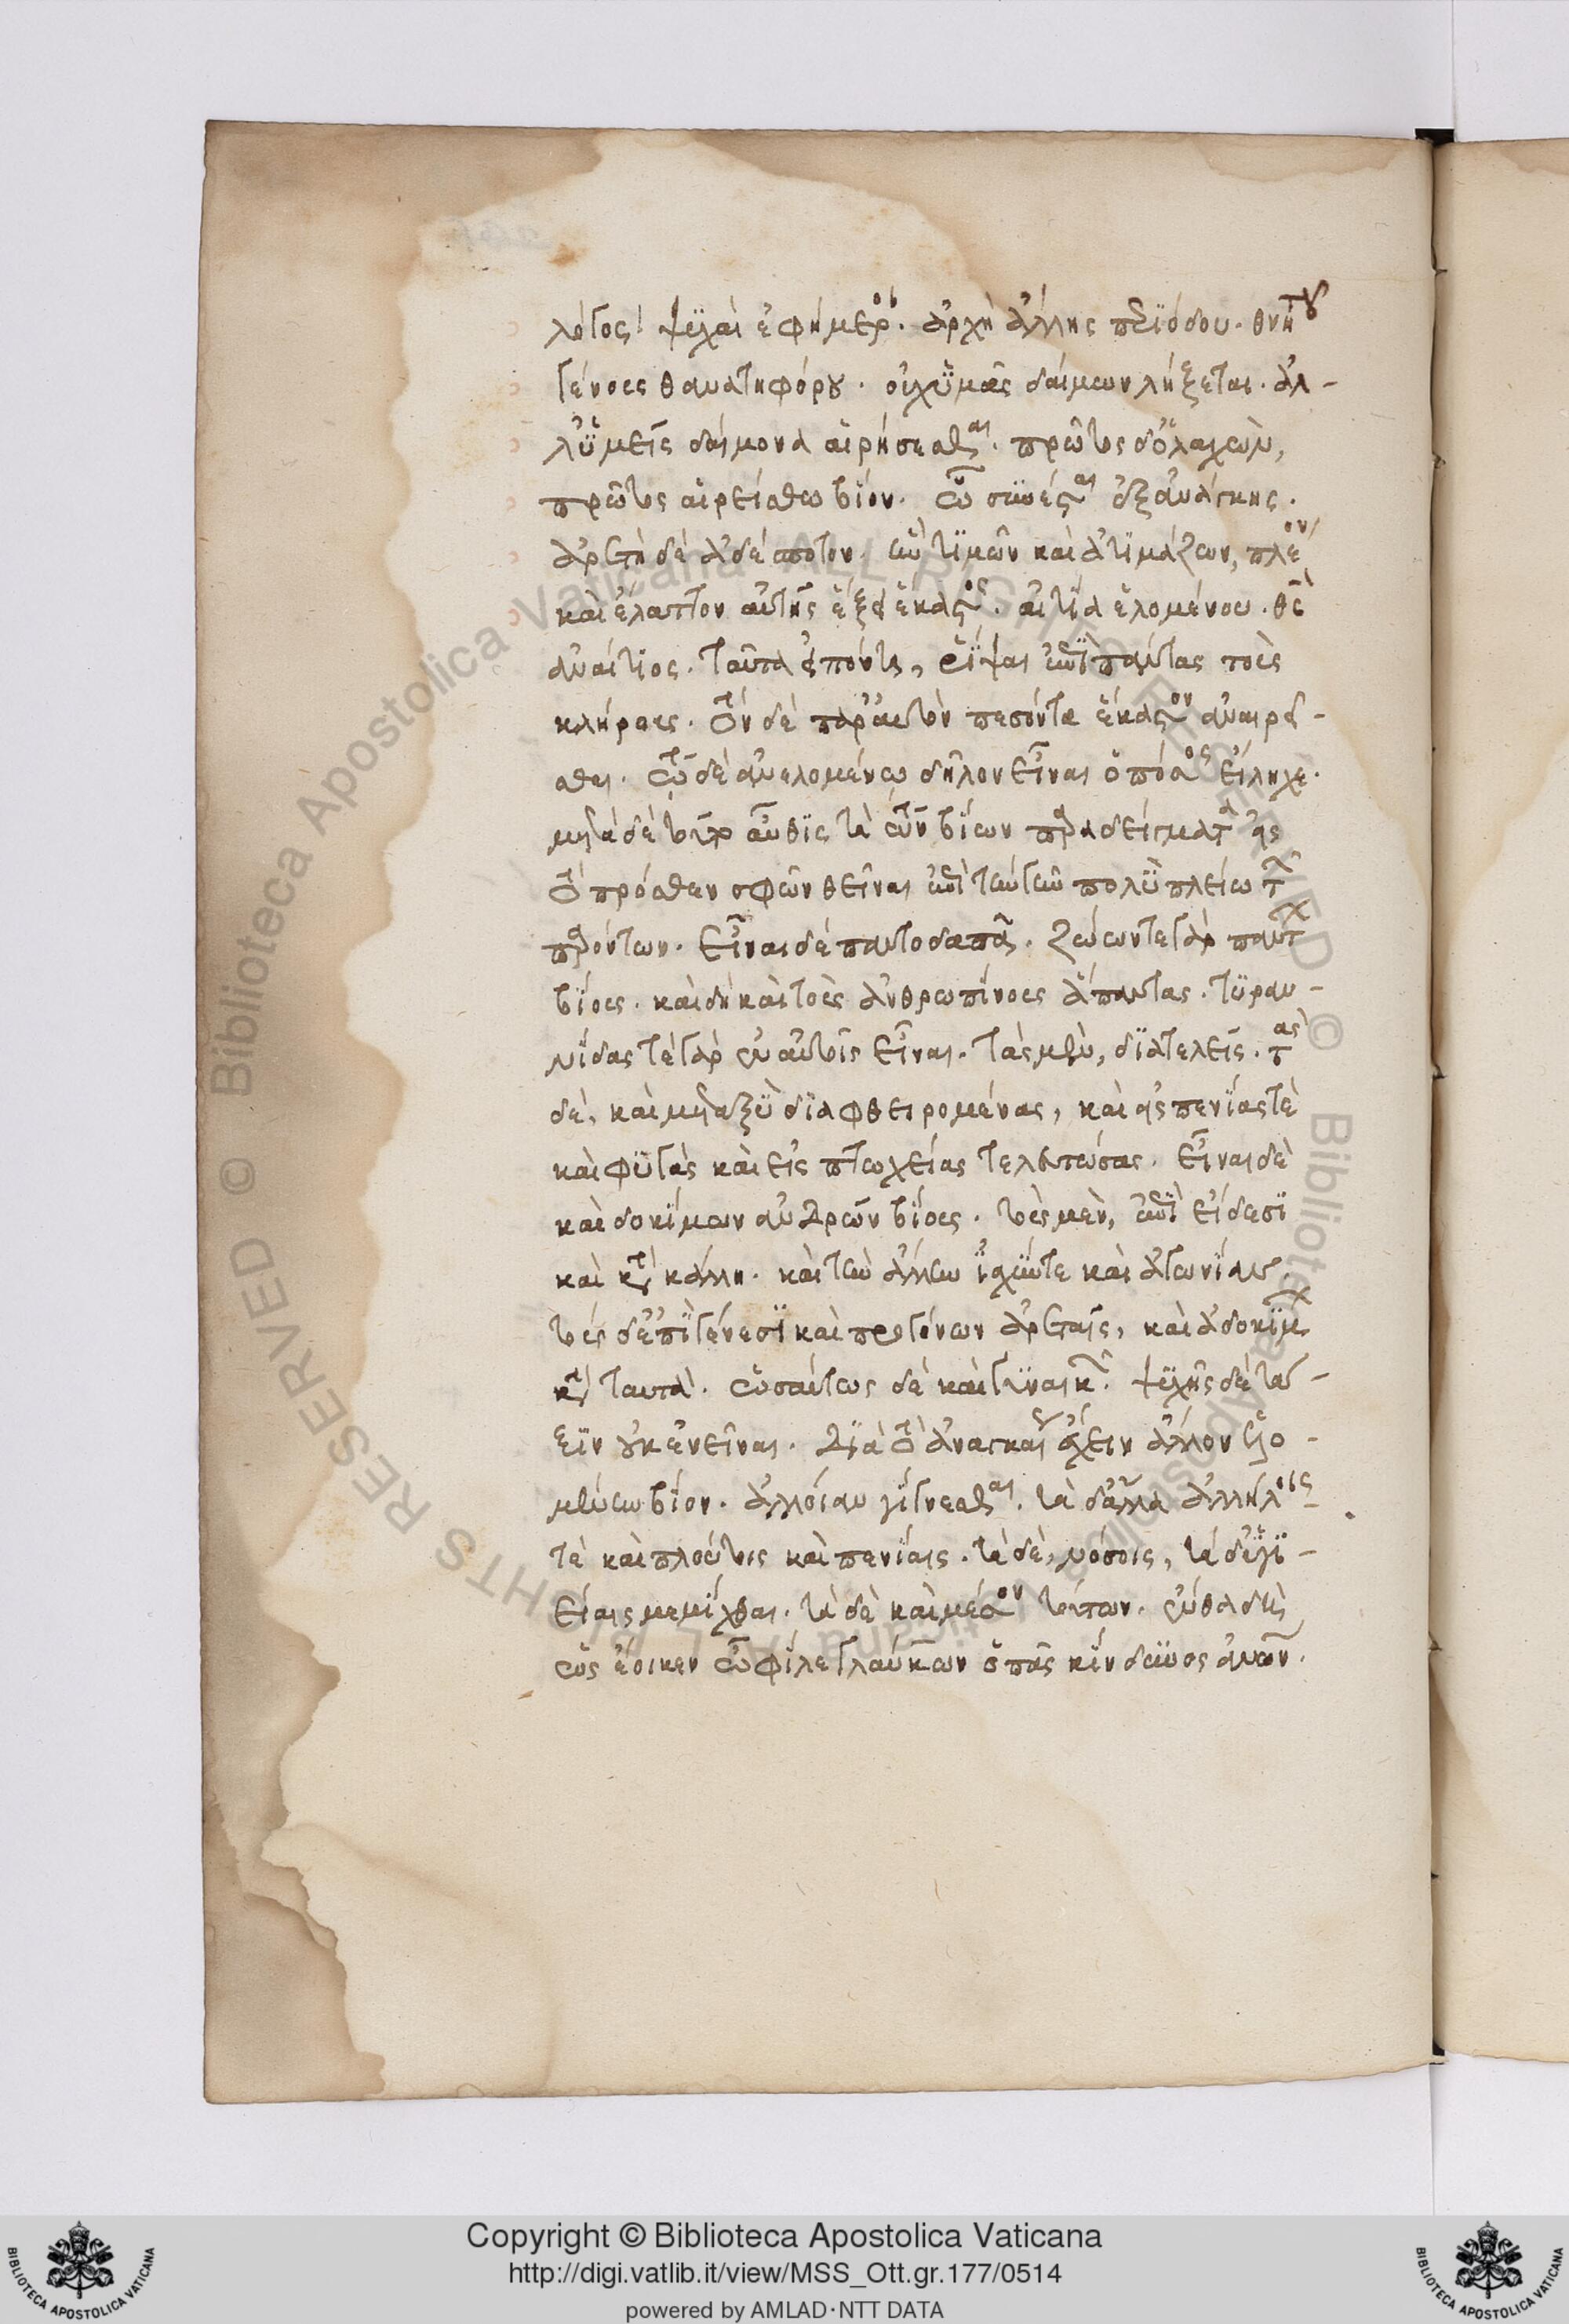 λόγος! ψϋχαὶ ἐφήμεροι. ἀρχὴ ἄλλης περϊόδου. θνητοῦ
γένους θανατηφόρου. οὐχ ϋμᾶς δαίμων λήξεται. ἀλ-
λ' ϋμεῖς δαίμονα αἱρήσεσθαι. πρῶτος δ' ὁ λαχὼν,
πρῶτος αἱρείσθω βίον. ὧ συνέσται ἐξ ἀνάγκης.
ἀρετὴ δὲ ἀδέσποτον. ἣν τϊμῶν καὶ ἀτϊμάζων, πλέον
καὶ ἔλαττον αὐτῆς ἕξει ἕκαστος. αἰτία ἑλομένου. θεὸς
ἀναίτϊος. ταῦτα εἰπόντα, ῥῖψαι ἐπὶ πάντας τοὺς
κλήρους. τὸν δὲ παρ' αὐτὸν πεσόντα ἕκαστον ἀναιρεῖ-
σθαι. τῷ δὲ ἀνελομένῳ δῆλον εἶναι ὁπόστος εἴληχε.
μετὰ δὲ τοῦτο αὖθϊς τὰ τῶν βίων παραδείγματα εἰς
τὸ πρόσθεν σφῶν θεῖναι ἐπὶ τὴν γῆν πολϋ πλείω τῶν
παρόντων. εἶναι δὲ παντοδαπά. ζώων τε γὰρ πάντων
βίους. καὶ δὴ καὶ τοὺς ἀνθρωπίνους ἅπαντας. τϋραν-
νίδας τὲ γὰρ ἐν αὐτοῖς εἶναι. τὰς μὲν, δϊατελεῖς. τὰς
δὲ, καὶ μεταξϋ δϊαφθειρομένας, καὶ εἰς πενίας τὲ
καὶ φϋγὰς καὶ εἰς πτωχείας τελευτώσας. εἶναι δὲ
καὶ δοκίμων ἀνδρῶν βίους. τοὺς μὲν, ἐπὶ εἴδεσϊ
καὶ κατὰ κάλλη. καὶ τὴν ἄλλην ἰσχύν τε καὶ ἀγωνίαν.
τοὺς δ' ἐπὶ γένεσϊ καὶ προγόνων ἀρεταῖς, καὶ ἀδοκίμων
κατὰ ταυτά. ὡσαύτως δὲ καὶ γϋναικῶν. ψϋχῆς δὲ τά-
ξϊν οὐκ ἐνεῖναι. δϊὰ τὸ ἀναγκαίως ἔχειν ἄλλον ἑλο-
μένην βίον. ἀλλοίαν γίγνεσθαι. τὰ δ' ἄλλα ἀλλήλοις
τὲ καὶ πλούτοις καὶ πενίαις. τὰ δὲ, νόσοις, τὰ δ' ὑγϊ-
είαις μεμῖχθαι. τὰ δὲ καὶ μέσον τούτων. ἔνθα δὴ
ὡς ἔοικεν ὦ φίλε γλαύκων ὁ πᾶς κίνδϋνος ἀνῶν.
Copyright © Biblioteca Apostolica Vaticana
http://digi.vatlib.it/view/MSS_Ott.gr.177/0514
powered by AMLAD·NTT DATA